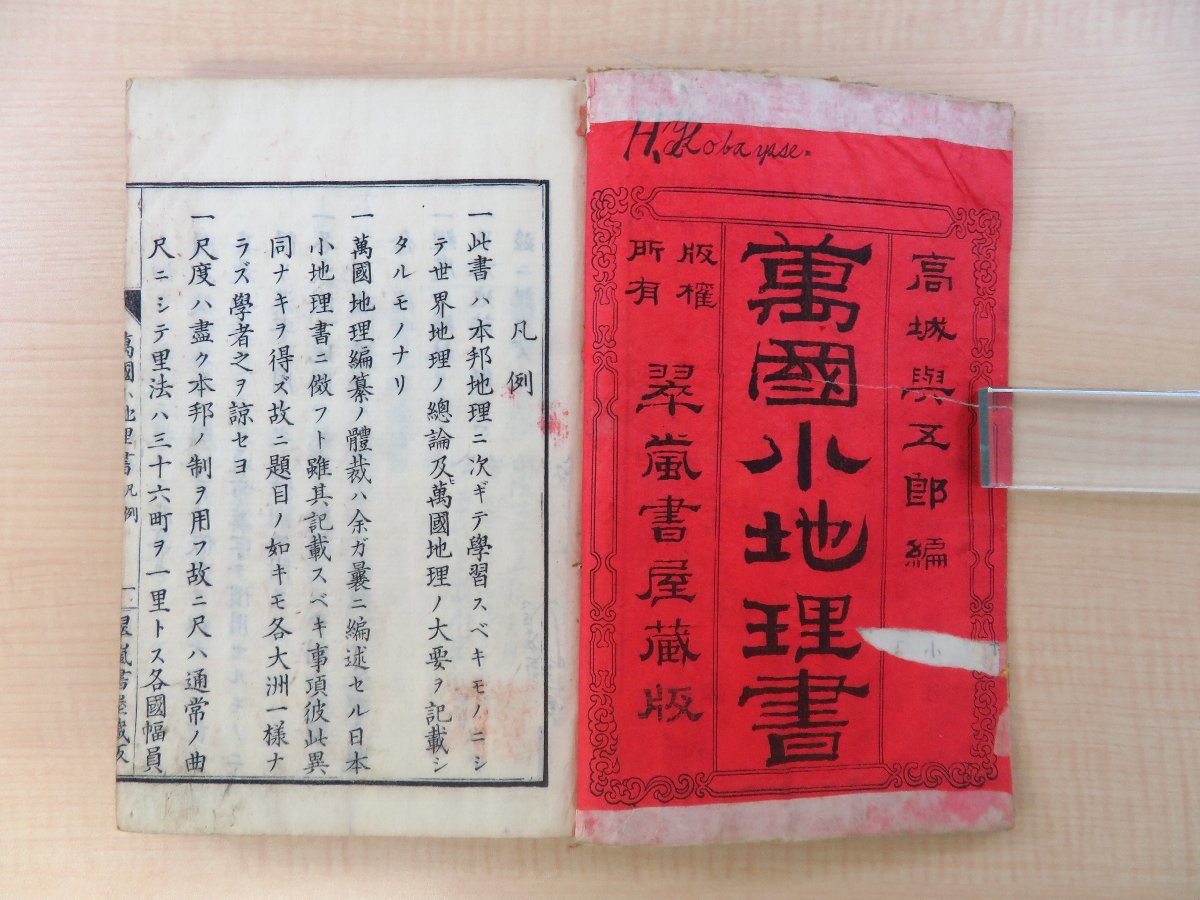 H. Kobayase.
高城與五郎編
萬國小地理書
版權
所有
翠嵐書屋藏版
小
凡例
一此書ハ本邦地理ニ次ギテ學習スベキモノニシ
テ世界地理ノ總論及萬國地理ノ大要ヲ記載シ
タルモノナリ
一萬國地理編纂ノ體裁ハ余ガ曩ニ編述セル日本
小地理書ニ倣フト雖其記載スベキ事項彼此異
同ナキヲ得ズ故ニ題目ノ如キモ各大洲一樣ナ
ラズ學者之ヲ諒セヨ
一尺度ハ盡ク本邦ノ制ヲ用フ故ニ尺ハ通常ノ曲
尺ニシテ里法ハ三十六町ヲ一里トス各國幅員
萬國小地理書 凡例 一 翠嵐書屋藏版